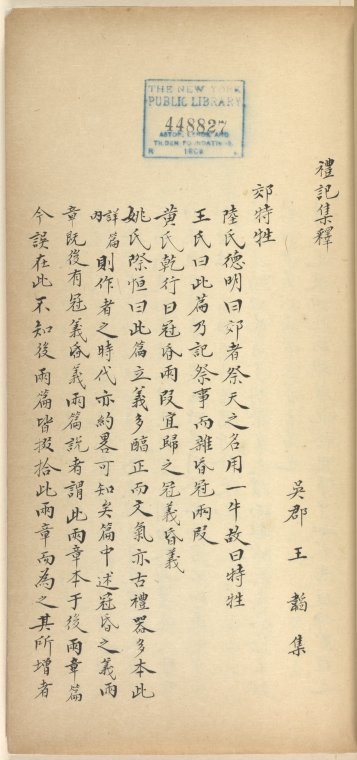 THE NEW YORK
PUBLIC LIBRARY
448827
ASTOR, LENOX AND
TILDEN FOUNDATIONS
R 1909
禮記集釋
吳郡 王 韜 集
郊特牲
陸氏德明曰郊者祭天之名用一牛故曰特牲
王氏曰此篇乃記祭事而雜昏冠兩段
黄氏乾行曰冠昏兩段宜歸之冠義昏義
姚氏際恒曰此篇立義多醇正而文氣亦古禮器多本此
詳篇內則作者之時代亦約畧可知矣篇中述冠昏之義兩
章既後有冠義昏義兩篇說者謂此兩章本于後兩章篇
今誤在此不知後兩篇皆掇拾此兩章而為之其所增者